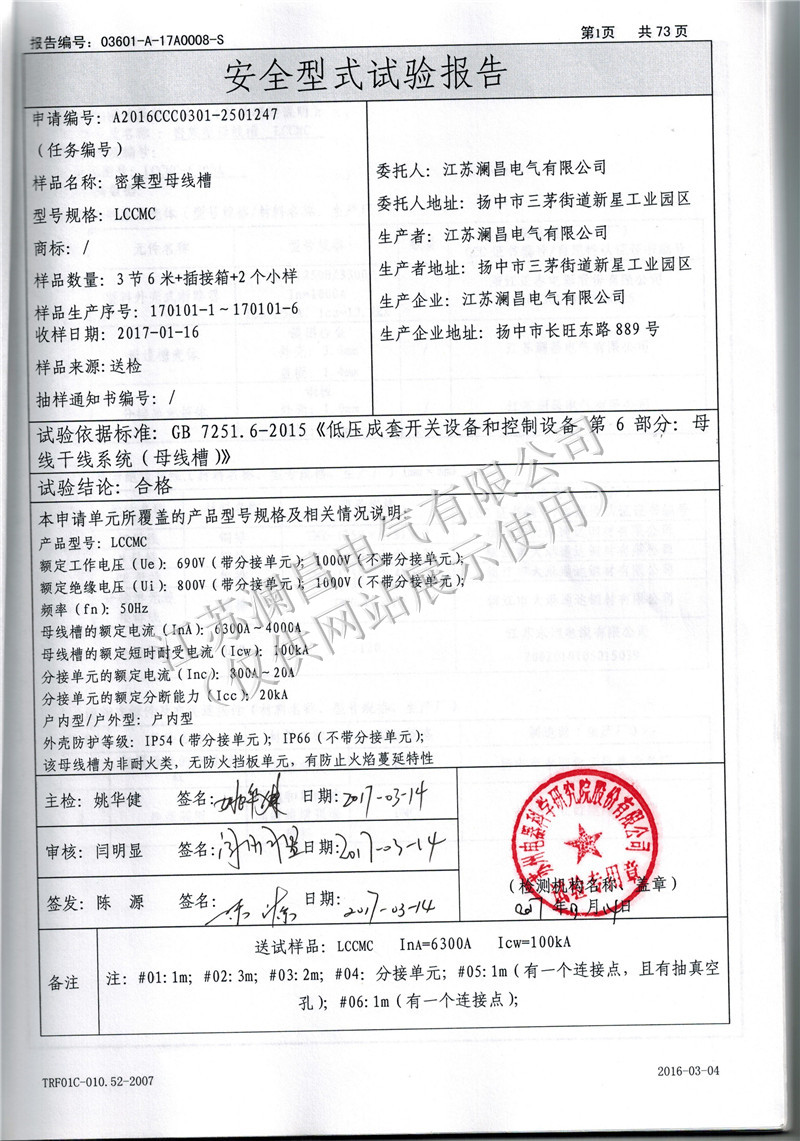 报告编号：03601-A-17A0008-S
第1页 共 73 页
安全型式试验报告
申请编号：A2016CCC0301-2501247
（任务编号）
样品名称：密集型母线槽
型号规格：LCCMC
商标：/
样品数量：3 节 6 米+插接箱+2 个小样
样品生产序号：170101-1～170101-6
收样日期：2017-01-16
样品来源：送检
抽样通知书编号：/
委托人：江苏澜昌电气有限公司
委托人地址：扬中市三茅街道新星工业园区
生产者：江苏澜昌电气有限公司
生产者地址：扬中市三茅街道新星工业园区
生产企业：江苏澜昌电气有限公司
生产企业地址：扬中市长旺东路 889 号
试验依据标准：GB 7251.6-2015《低压成套开关设备和控制设备 第 6 部分：母
线干线系统（母线槽）》
试验结论：合格
本申请单元所覆盖的产品型号规格及相关情况说明：
产品型号：LCCMC
额定工作电压（Ue）：690V（带分接单元）；1000V（不带分接单元）；
额定绝缘电压（Ui）：800V（带分接单元）；1000V（不带分接单元）；
频率（fn）：50Hz
母线槽的额定电流（InA）：6300A～4000A
母线槽的额定短时耐受电流（Icw）：100kA
分接单元的额定电流（Inc）：800A～20A
分接单元的额定分断能力（Icc）：20kA
户内型/户外型：户内型
外壳防护等级：IP54（带分接单元）；IP66（不带分接单元）；
该母线槽为非耐火类，无防火挡板单元，有防止火焰蔓延特性
江苏澜昌电气有限公司
（仅供网站展示使用）
主检：姚华健 签名：姚华健 日期：2017-03-14
审核：闫明显 签名：闫明显 日期：2017-03-14
签发：陈 源 签名：陈源 日期：2017-03-14
苏州电器科学研究院股份有限公司
试验专用章
（检测机构名称、盖章）
年 月 日
备注
送试样品：LCCMC InA=6300A Icw=100kA
注：#01:1m；#02:3m；#03:2m；#04：分接单元；#05:1m（有一个连接点，且有抽真空
孔）；#06:1m（有一个连接点）；
TRF01C-010.52-2007
2016-03-04